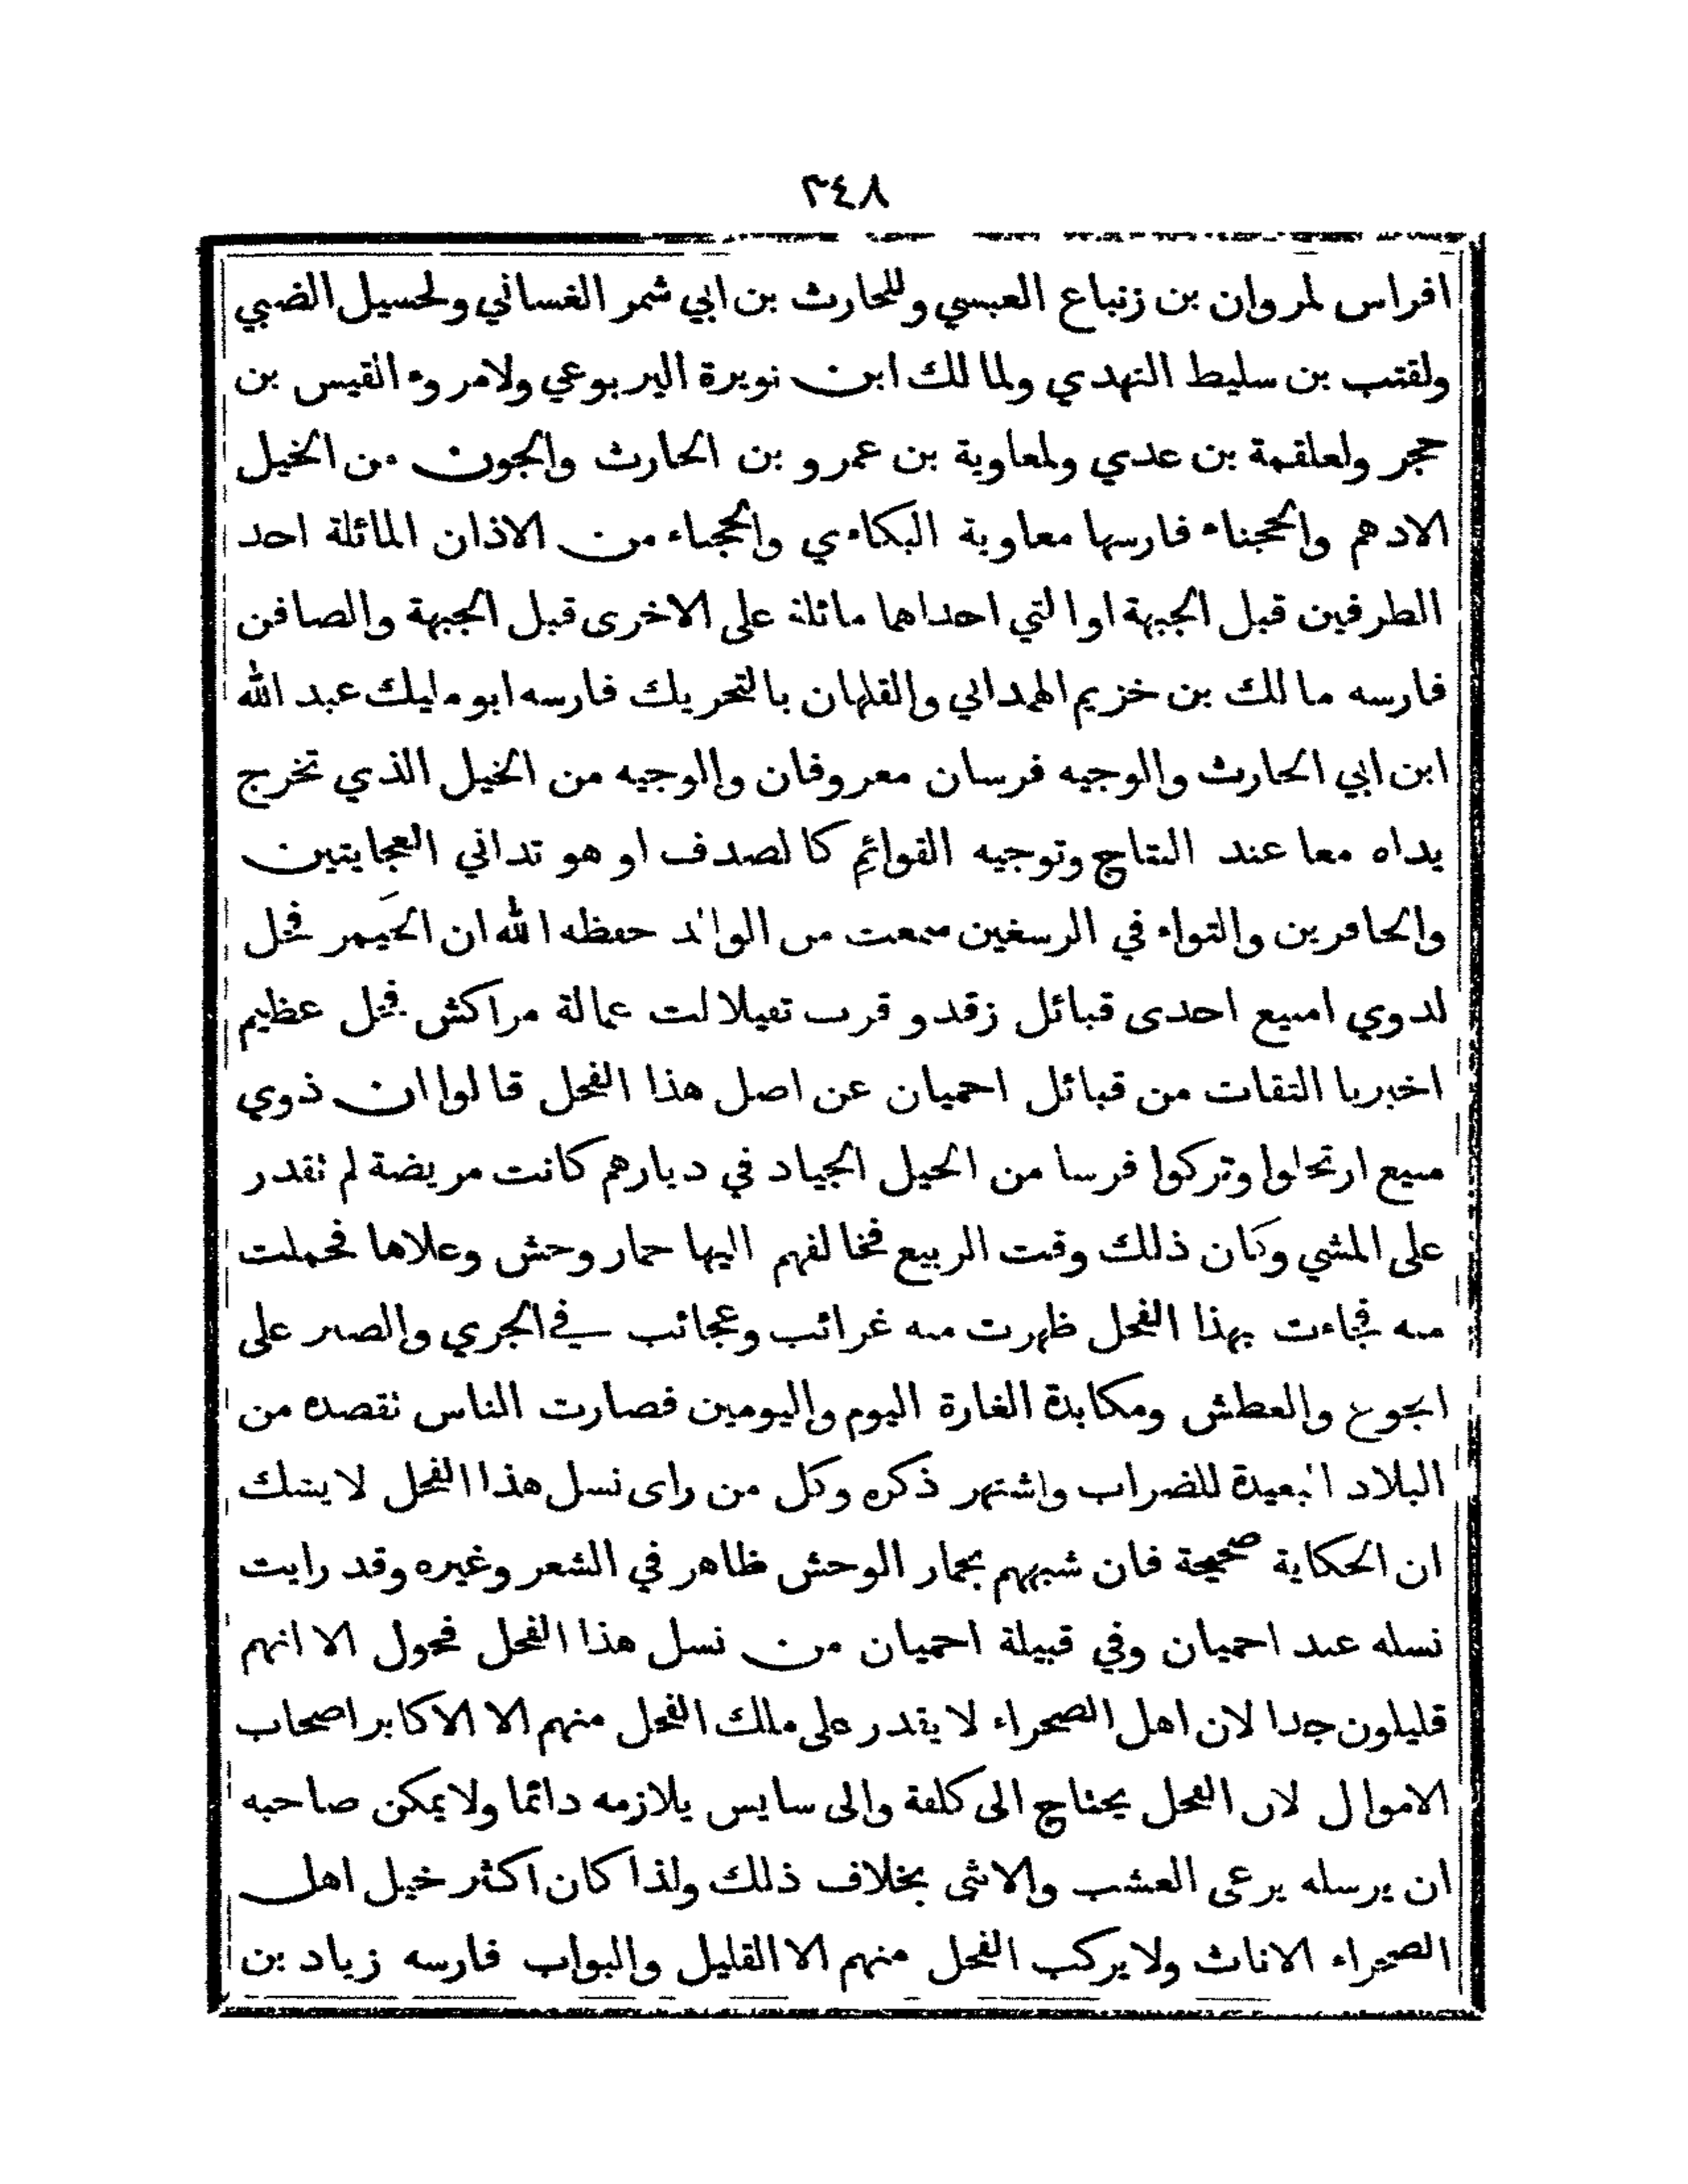 ٣٤٨
افراس لمروان بن زنباع العبسي وللحارث بن ابي شمر الغساني ولحسيل الضبي
ولقتب بن سليط النهدي ولمالك ابن نويرة اليربوعي ولامروء القيس بن
حجر ولعلقمة بن عدي ولمعاوية بن عمرو بن الحارث والجون من الخيل
الادهم والحجناء فارسها معاوية البكاءي والحجباء من الاذان المائلة احد
الطرفين قبل الجبهة او التي احداهما مائلة على الاخرى قبل الجبهة والصافن
فارسه مالك بن خزيم الهمداني والقلهان بالتحريك فارسه ابو مليك عبد الله
ابن ابي الحارث والوجيه فرسان معروفان والوجيه من الخيل الذي تخرج
يداه معا عند النتاج وتوجيه القوائم كالصدف او هو تداني العجايتين
والحافرين والتواء في الرسغين سمعت من الوالد حفظه الله ان الحَيمر فحل
لدوي امنيع احدى قبائل زقدو قرب تفيلالت عمالة مراكش فحل عظيم
اخبرنا الثقات من قبائل احميان عن اصل هذا الفحل قالوا ان ذوي
منيع ارتحلوا وتركوا فرسا من الخيل الجياد في ديارهم كانت مريضة لم تقدر
على المشي وكان ذلك وقت الربيع فخالفهم اليها حمار وحش وعلاها فحملت
منه فجاءت بهذا الفحل ظهرت منه غرائب وعجائب في الجري والصبر على
الجوع والعطش ومكابدة الغارة اليوم واليومين فصارت الناس تقصده من
البلاد البعيدة للضراب واشتهر ذكره وكل من راى نسل هذا الفحل لا يشك
ان الحكاية صحيحة فان شبههم بحمار الوحش ظاهر في الشعر وغيره وقد رايت
نسله عند احميان وفي قبيلة احميان من نسل هذا الفحل فحول الا انهم
قليلون جدا لان اهل الصحراء لا يقدر على ملك الفحل منهم الا الاكابر اصحاب
الاموال لان الفحل يحتاج الى كلفة والى سايس يلازمه دائما ولا يمكن صاحبه
ان يرسله يرعى العشب والانثى بخلاف ذلك ولذا كان اكثر خيل اهل
الصحراء الاناث ولا يركب الفحل منهم الا القليل والبواب فارسه زياد بن